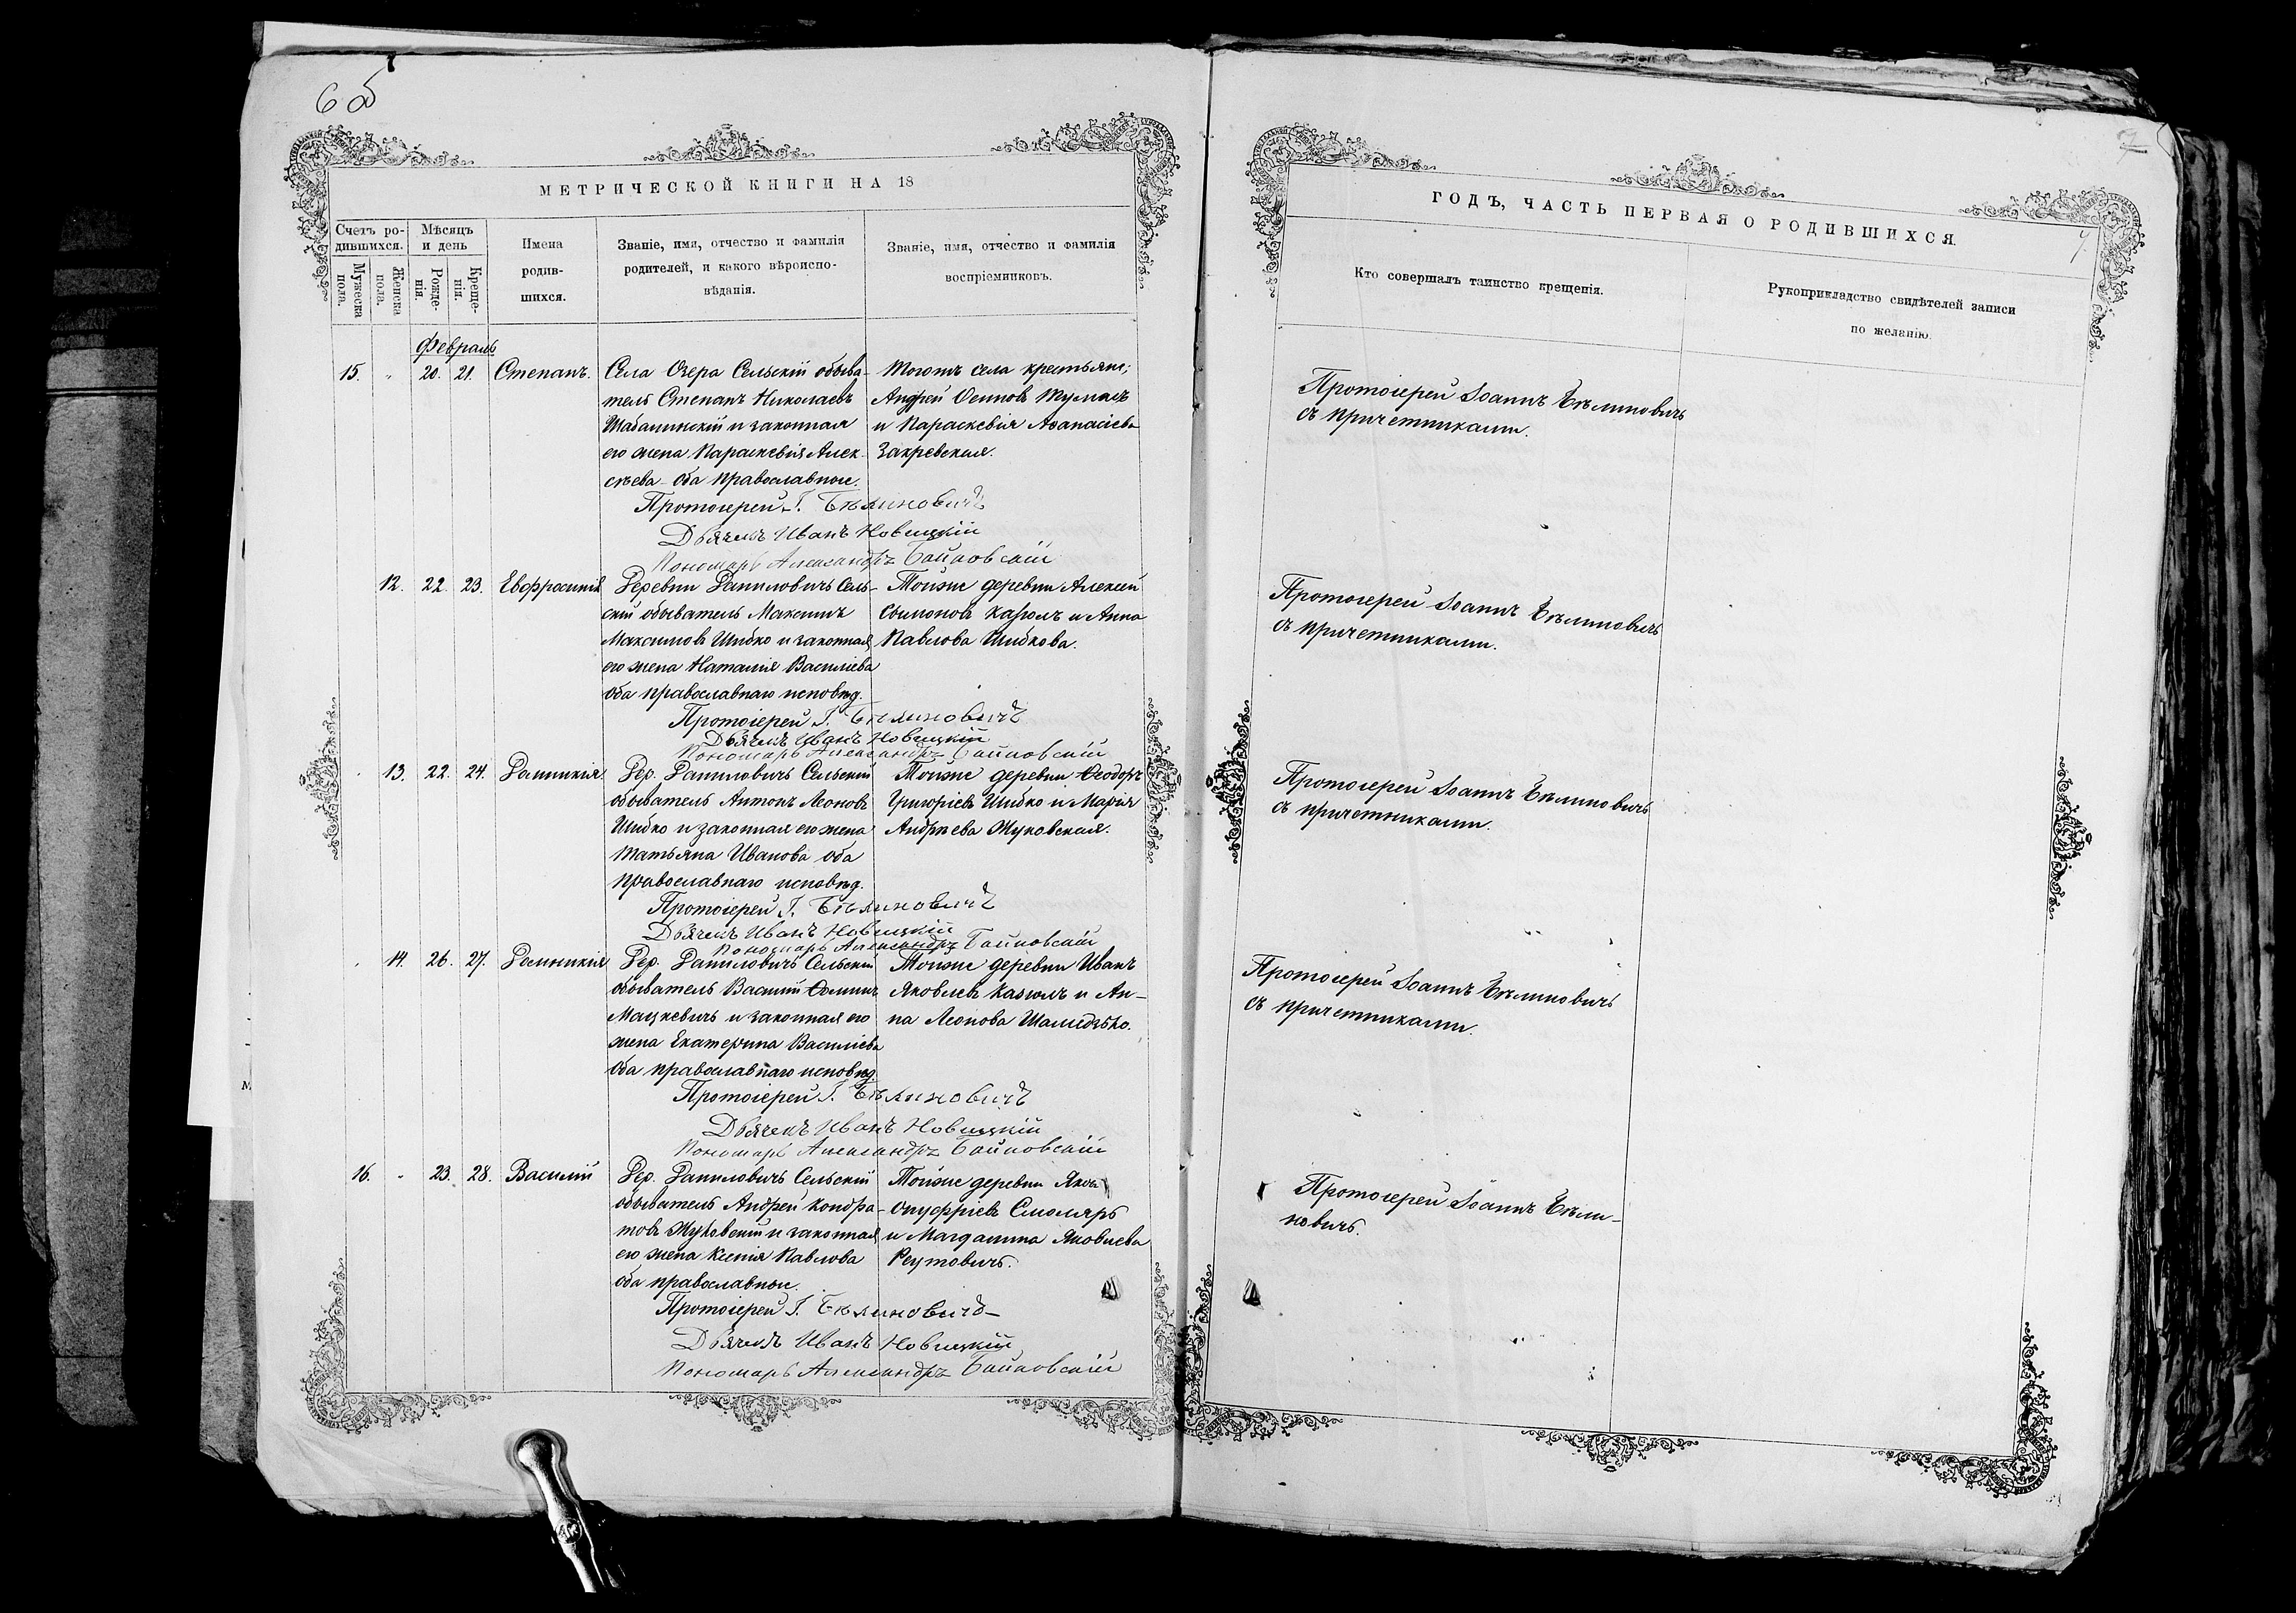 6 об
МЕТРИЧЕСКОЙ КНИГИ НА 18
Счетъ ро-
дившихся.
Мѣсяцъ
и день
Мужеска
пола.
Женска
пола.
Рожде-
нія.
Креще-
нія.
Имена
родив-
шихся.
Званіе, имя, отчество и фамилія
родителей, и какого вѣроиспо-
вѣданія.
Званіе, имя, отчество и фамилія
воспріемниковъ.
Февраль
15. " 20. 21. Степанъ.
Села Озера Сельскій обыва-
тель Степанъ Николаевъ
Шабалинскій и законная
его жена Параскевія Алек-
сѣева оба православные.
Тогожъ села крестьяне;
Андрей Осиповъ
и Параскевія Аѳанасіева
Закревская.
Протоіерей І. Бѣлиновичъ
Дьячекъ Иванъ Новицкій
Пономарь Александръ
12. 22. 23. Евфросинія
Деревни Даниловичъ Сель-
скій обыватель Максимъ
Максимовъ Шибко и законная
его жена Наталія Василіева
оба православнаго исповѣд.
Тойже деревни Алексій
Симоновъ и Анна
Павлова Шибкова.
Протоіерей І. Бѣлиновичъ
Дьячекъ Иванъ Новицкій
Пономарь Александръ
13. 22. 24. Домникія
Дер. Даниловичъ Сельскій
обыватель Антонъ Леоновъ
Шибко и законная его жена
Татьяна Иванова оба
православнаго исповѣд.
Тойже деревни Ѳеодоръ
Григоріевъ Шибко и Марія
Андреева Жуковская.
Протоіерей І. Бѣлиновичъ
Дьячекъ Иванъ Новицкій
Пономарь Александръ
14. 26. 27. Домникія
Дер. Даниловичъ Сельскій
обыватель Василій Ѳоминъ
Мацкевичъ и законная его
жена Екатерина Василіева
оба православнаго исповѣд.
Тойже деревни Иванъ
Яковлевъ и Ан-
на Леонова
Протоіерей І. Бѣлиновичъ
Дьячекъ Иванъ Новицкій
Пономарь Александръ
16. " 23. 28. Василій
Дер. Даниловичъ Сельскій
обыватель Андрей Кондра-
товъ Жуковскій и законная
его жена Ксенія Павлова
оба православные.
Тойже деревни
Онуфріевъ Смоляръ
и Магдалина Яковлева
Реутовичъ.
Протоіерей І. Бѣлиновичъ
Дьячекъ Иванъ Новицкій
Пономарь Александръ
7
7.
ГОДЪ, ЧАСТЬ ПЕРВАЯ О РОДИВШИХСЯ.
Кто совершалъ таинство крещенія.
Рукоприкладство свидѣтелей записи
по желанію.
Протоіерей Іоаннъ Бѣлиновичъ
съ причетниками.
Протоіерей Іоаннъ Бѣлиновичъ
съ причетниками.
Протоіерей Іоаннъ Бѣлиновичъ
съ причетниками.
Протоіерей Іоаннъ Бѣлиновичъ
съ причетниками.
Протоіерей Іоаннъ Бѣли-
новичъ.